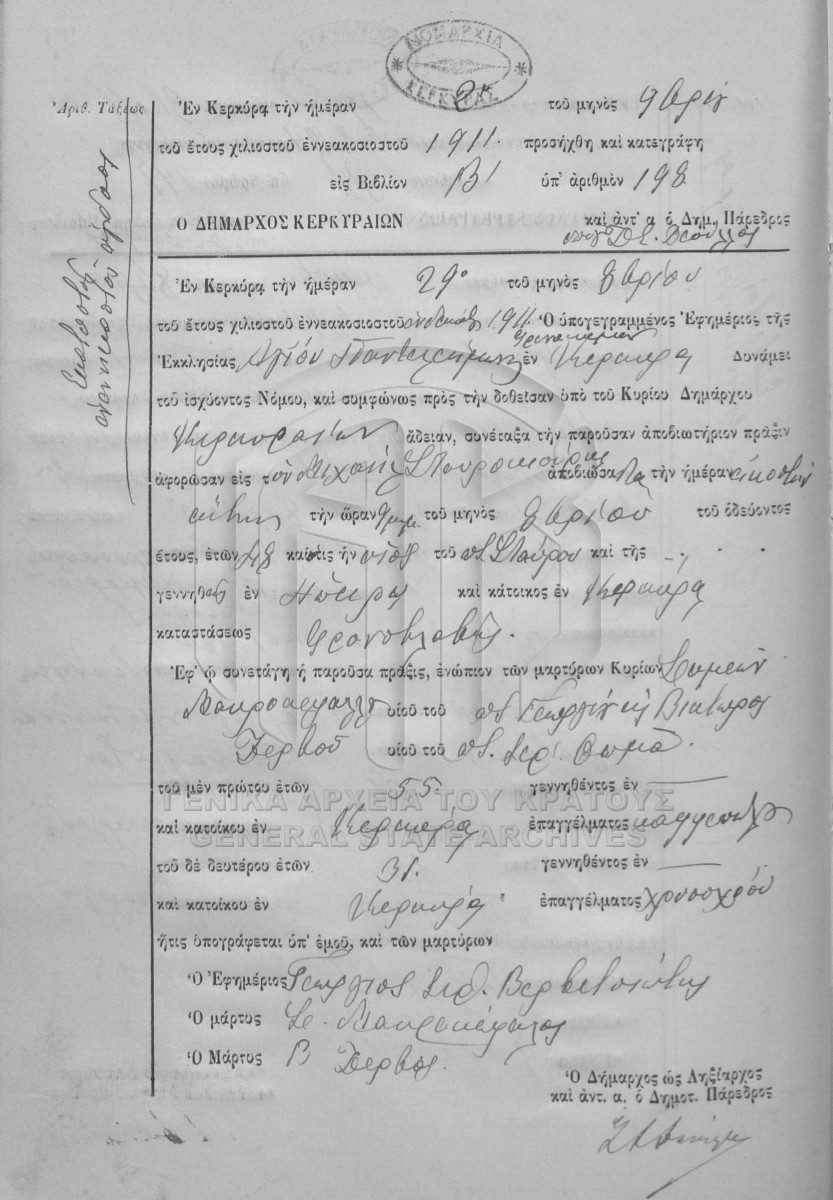 ΝΟΜΑΡΧΙΑ
ΚΕΡΚΥΡΑΣ
Ἀριθ. Τάξεως
Ἐν Κερκύρᾳ τὴν ἡμέραν τοῦ μηνὸς 9βρίου
τοῦ ἔτους χιλιοστοῦ ἐννεακοσιοστοῦ 1911. προσήχθη καὶ κατεγράφη
εἰς Βιβλίον Β' ὑπ' ἀριθμὸν 198
Ο ΔΗΜΑΡΧΟΣ ΚΕΡΚΥΡΑΙΩΝ καὶ ἀντ' α ὁ Δημ. Πάρεδρος
Ἐν Κερκύρᾳ τὴν ἡμέραν 29 τοῦ μηνὸς 8βρίου
τοῦ ἔτους χιλιοστοῦ ἐννεακοσιοστοῦ ἑνδεκάτου 1911. Ὁ ὑπογεγραμμένος Ἐφημέριος τῆς
Ἐκκλησίας Ἁγίου Παντελεήμονος ἐν Κερκύρᾳ Δυνάμει
τοῦ ἰσχύοντος Νόμου, καὶ συμφώνως πρὸς τὴν δοθεῖσαν ὑπὸ τοῦ Κυρίου Δημάρχου
Κερκυραίων ἄδειαν, συνέταξα τὴν παροῦσαν ἀποβιωτήριον πρᾶξιν
ἀφορῶσαν εἰς τὸν Μιχαὴλ ἀποβιώσαντα τὴν ἡμέραν εἰκοστὴν
τὴν ὥραν τοῦ μηνὸς 8βρίου τοῦ ὁδεύοντος
ἔτους, ἐτῶν καὶ τις ἦν υἱὸς τοῦ ποτ. Σταύρου καὶ τῆς -
γεννηθεὶς ἐν Ἠπείρῳ καὶ κάτοικος ἐν Κερκύρᾳ
καταστάσεως
Ἐφ' ᾧ συνετάγη ἡ παροῦσα πρᾶξις, ἐνώπιον τῶν μαρτύρων Κυρίων Συμεὼν
Μαυροκέφαλου υἱοῦ τοῦ ποτ. Γεωργίου καὶ Βίκτωρος
Δερβοῦ υἱοῦ τοῦ ποτ. Θωμᾶ.
τοῦ μὲν πρώτου ἐτῶν 55. γεννηθέντος ἐν —
ΓΕΝΙΚΑ ΑΡΧΕΙΑ ΤΟΥ ΚΡΑΤΟΥΣ
καὶ κατοίκου ἐν Κερκύρᾳ ἐπαγγέλματος καφφεπώλου
GENERAL STATE ARCHIVES
τοῦ δὲ δευτέρου ἐτῶν 31. γεννηθέντος ἐν —
καὶ κατοίκου ἐν Κερκύρᾳ ἐπαγγέλματος χρυσοχόου
ἥτις ὑπογράφεται ὑπ' ἐμοῦ, καὶ τῶν μαρτύρων
Ὁ Ἐφημέριος Γεώργιος
Ὁ μάρτυς Σ. Μαυροκέφαλος
Ὁ Μάρτυς Β Δερβός.
Ὁ Δήμαρχος ὡς Ληξίαρχος
καὶ ἀντ. α. ὁ Δημοτ. Πάρεδρος